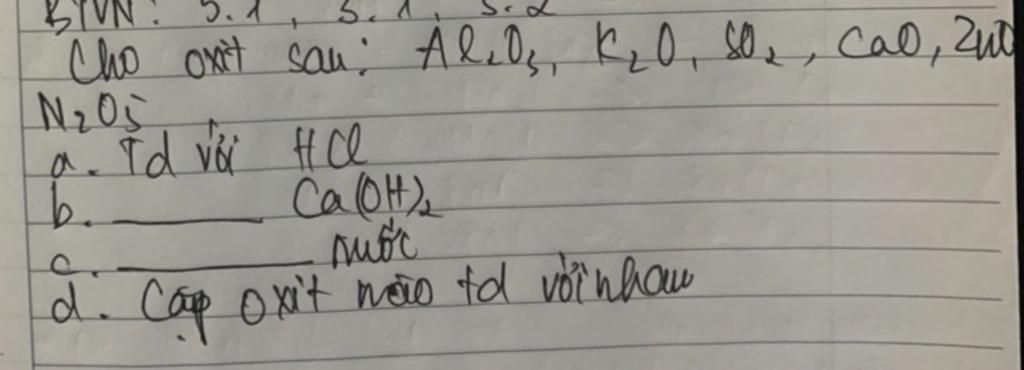 BTVN: 5.1, 5.1, 5.2
Cho oxit sau: Al₂O₃, K₂O, SO₂, CaO, ZnO
N₂O₅
a. Td với HCl
b. ______ Ca(OH)₂
c. ______ nước
d. Cặp oxit nào td với nhau